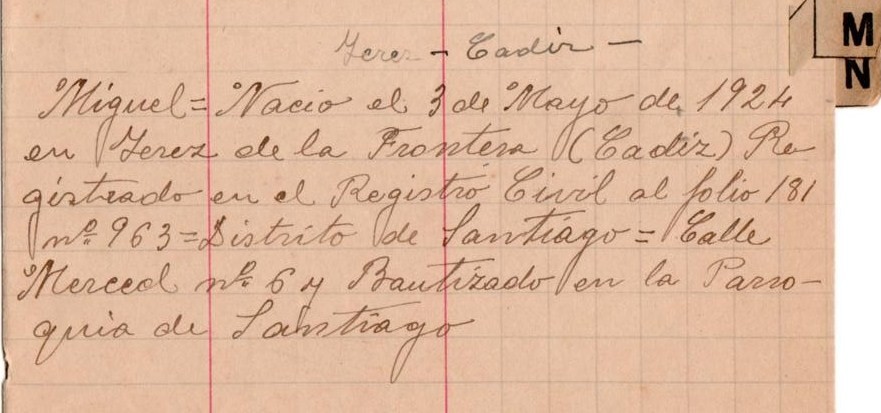 Jerez - Cadiz -
M
N
Miguel = Nacio el 3 de Mayo de 1924
en Jerez de la Frontera (Cadiz) Re
gistrado en el Registro Civil al folio 181
nº 963 = Distrito de Santiago = Calle
Merced nº 6 y Bautizado en la Parro-
quia de Santiago